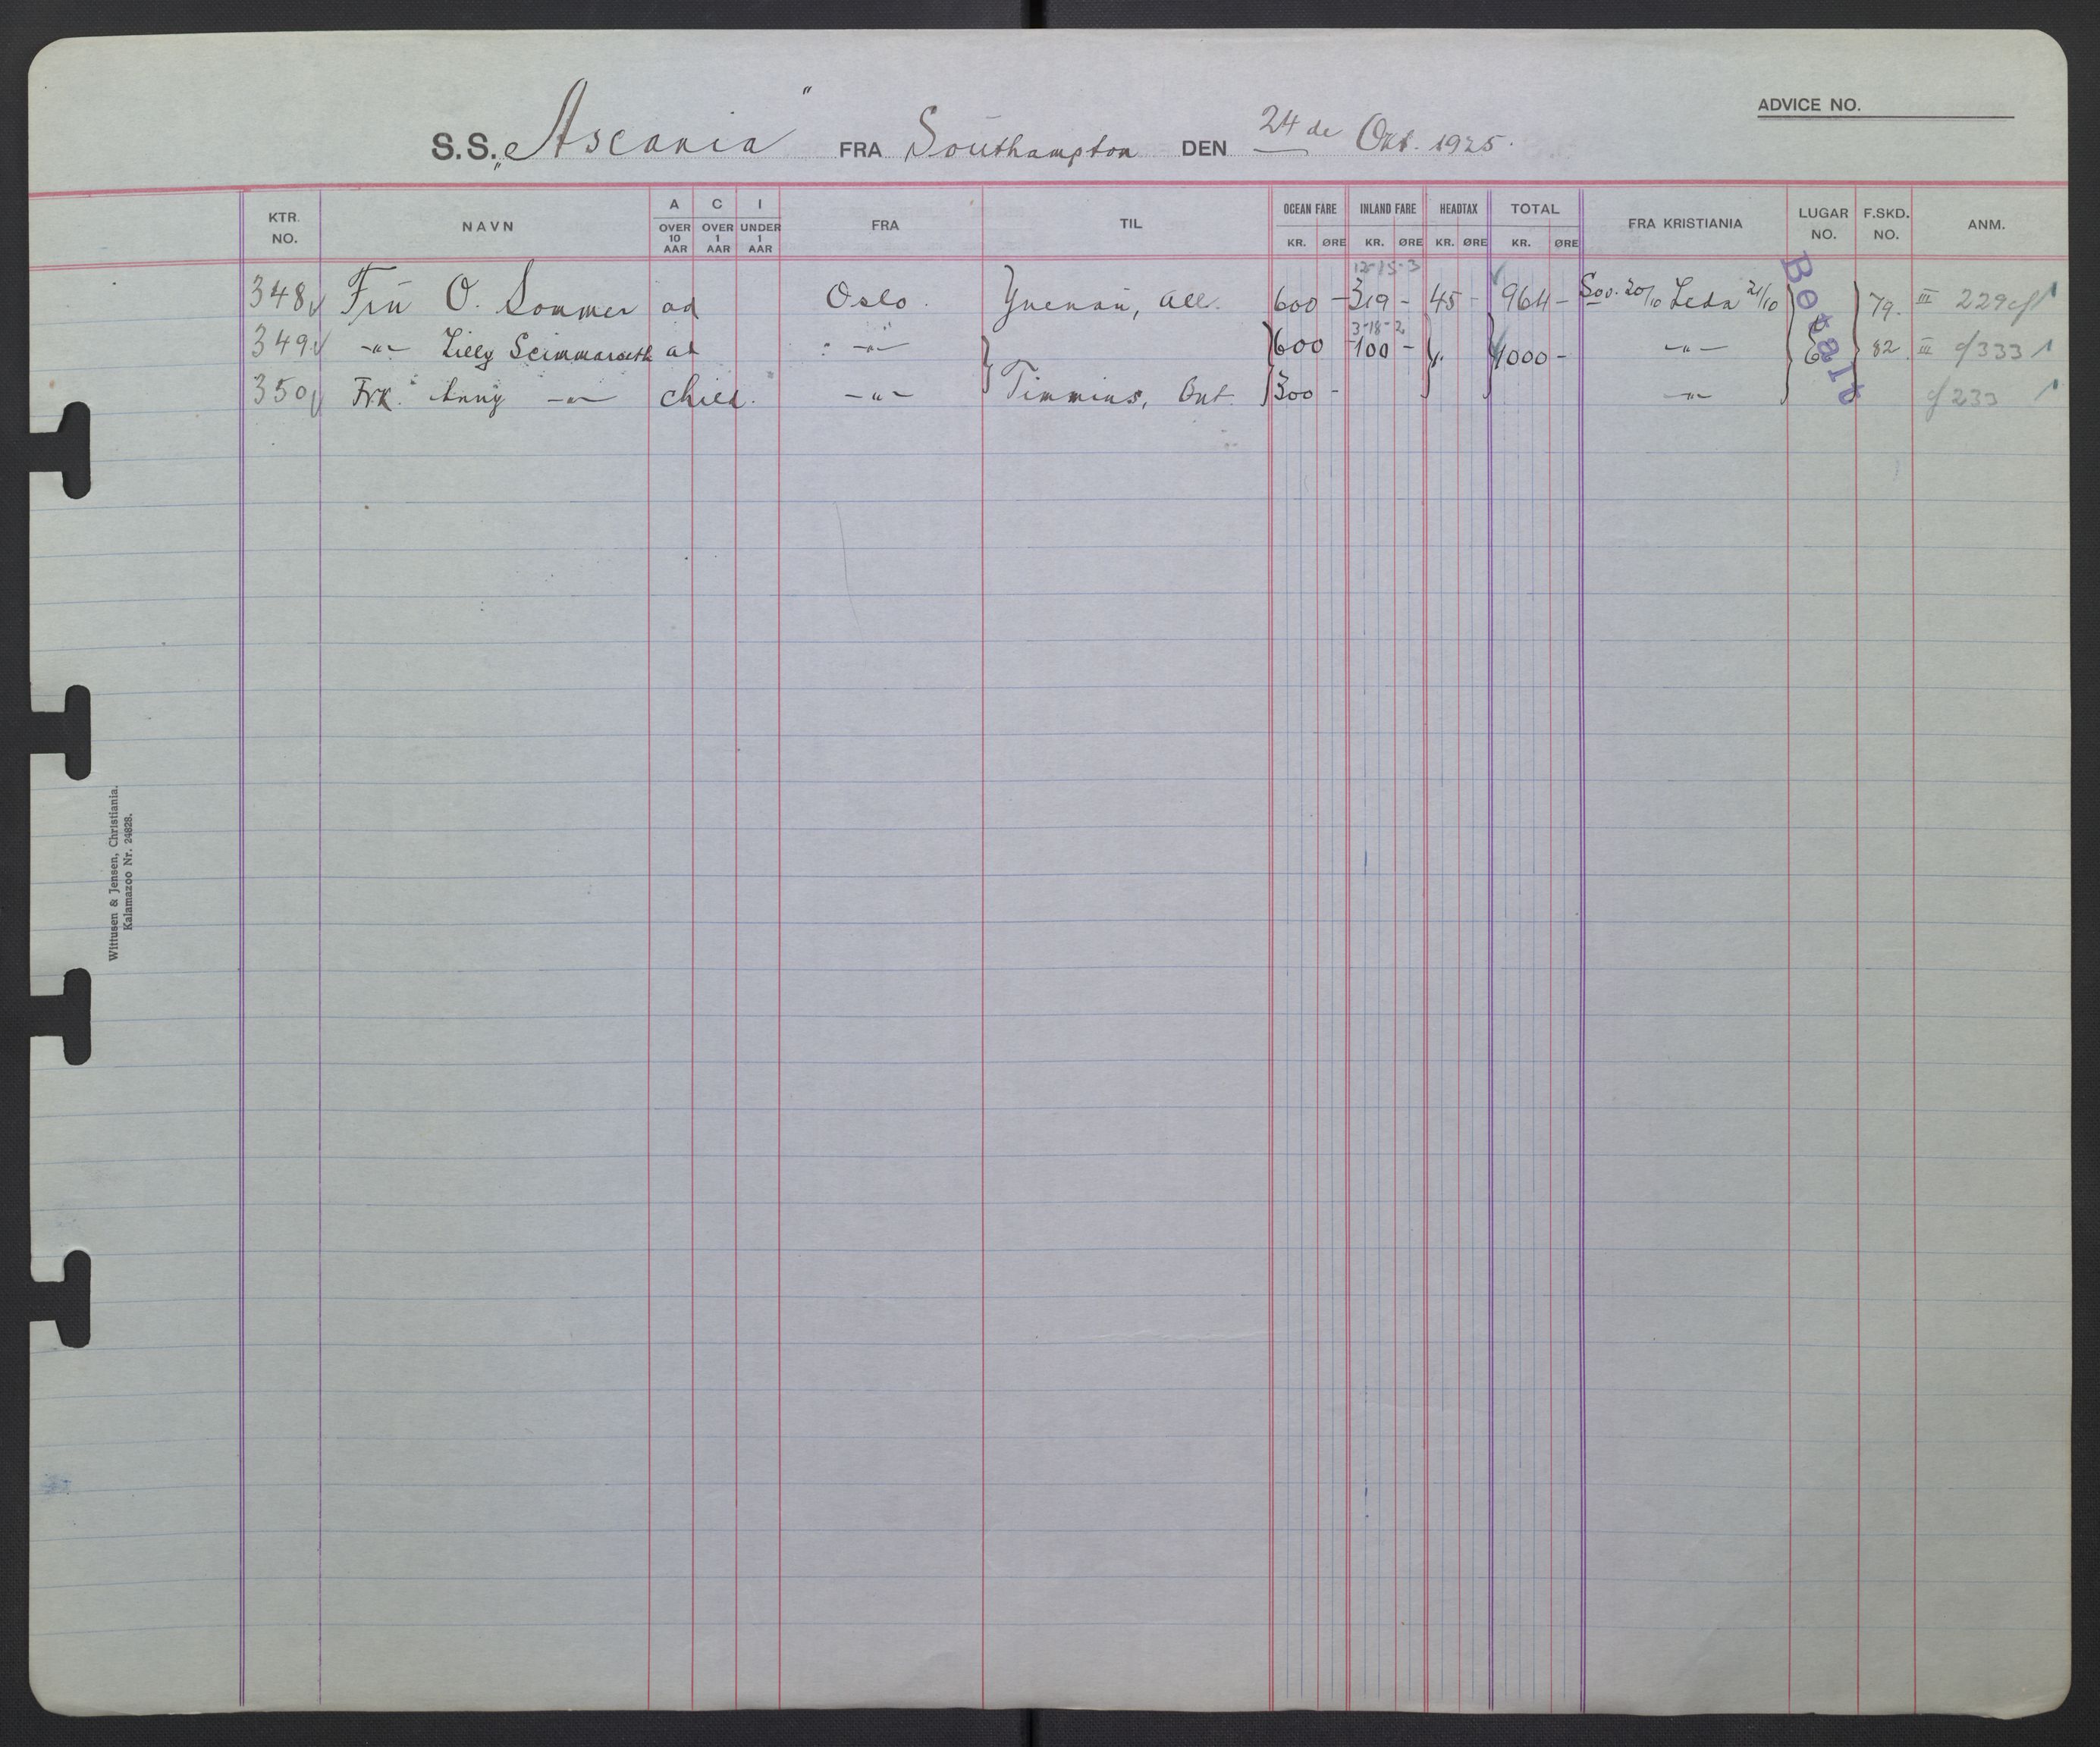 ADVICE NO.
S.S. „Ascania" FRA Southampton DEN 24 de Okt. 1925.
KTR. NO. NAVN A OVER 10 AAR C OVER 1 AAR I UNDER 1 AAR FRA TIL OCEAN FARE KR. ØRE INLAND FARE KR. ØRE HEADTAX KR. ØRE TOTAL KR. ØRE FRA KRISTIANIA LUGAR NO. F.SKD. NO. ANM.
12-15-3
348 Frü O. Sommer ad Oslo. All. 600 - 319 - 45 - 964 - 20/10 Leda 21/10 79. III 229
3-18-2
349 -"- Lilly ad -"- 600 - 100 - 1000 - -"- 6 82 III 333
350 Frk. Anny -"- child. -"- Timmins, Ont. 300 - -"- 233
Betalt
Wittusen & Jensen, Christiania.
Kalamazoo Nr. 24828.